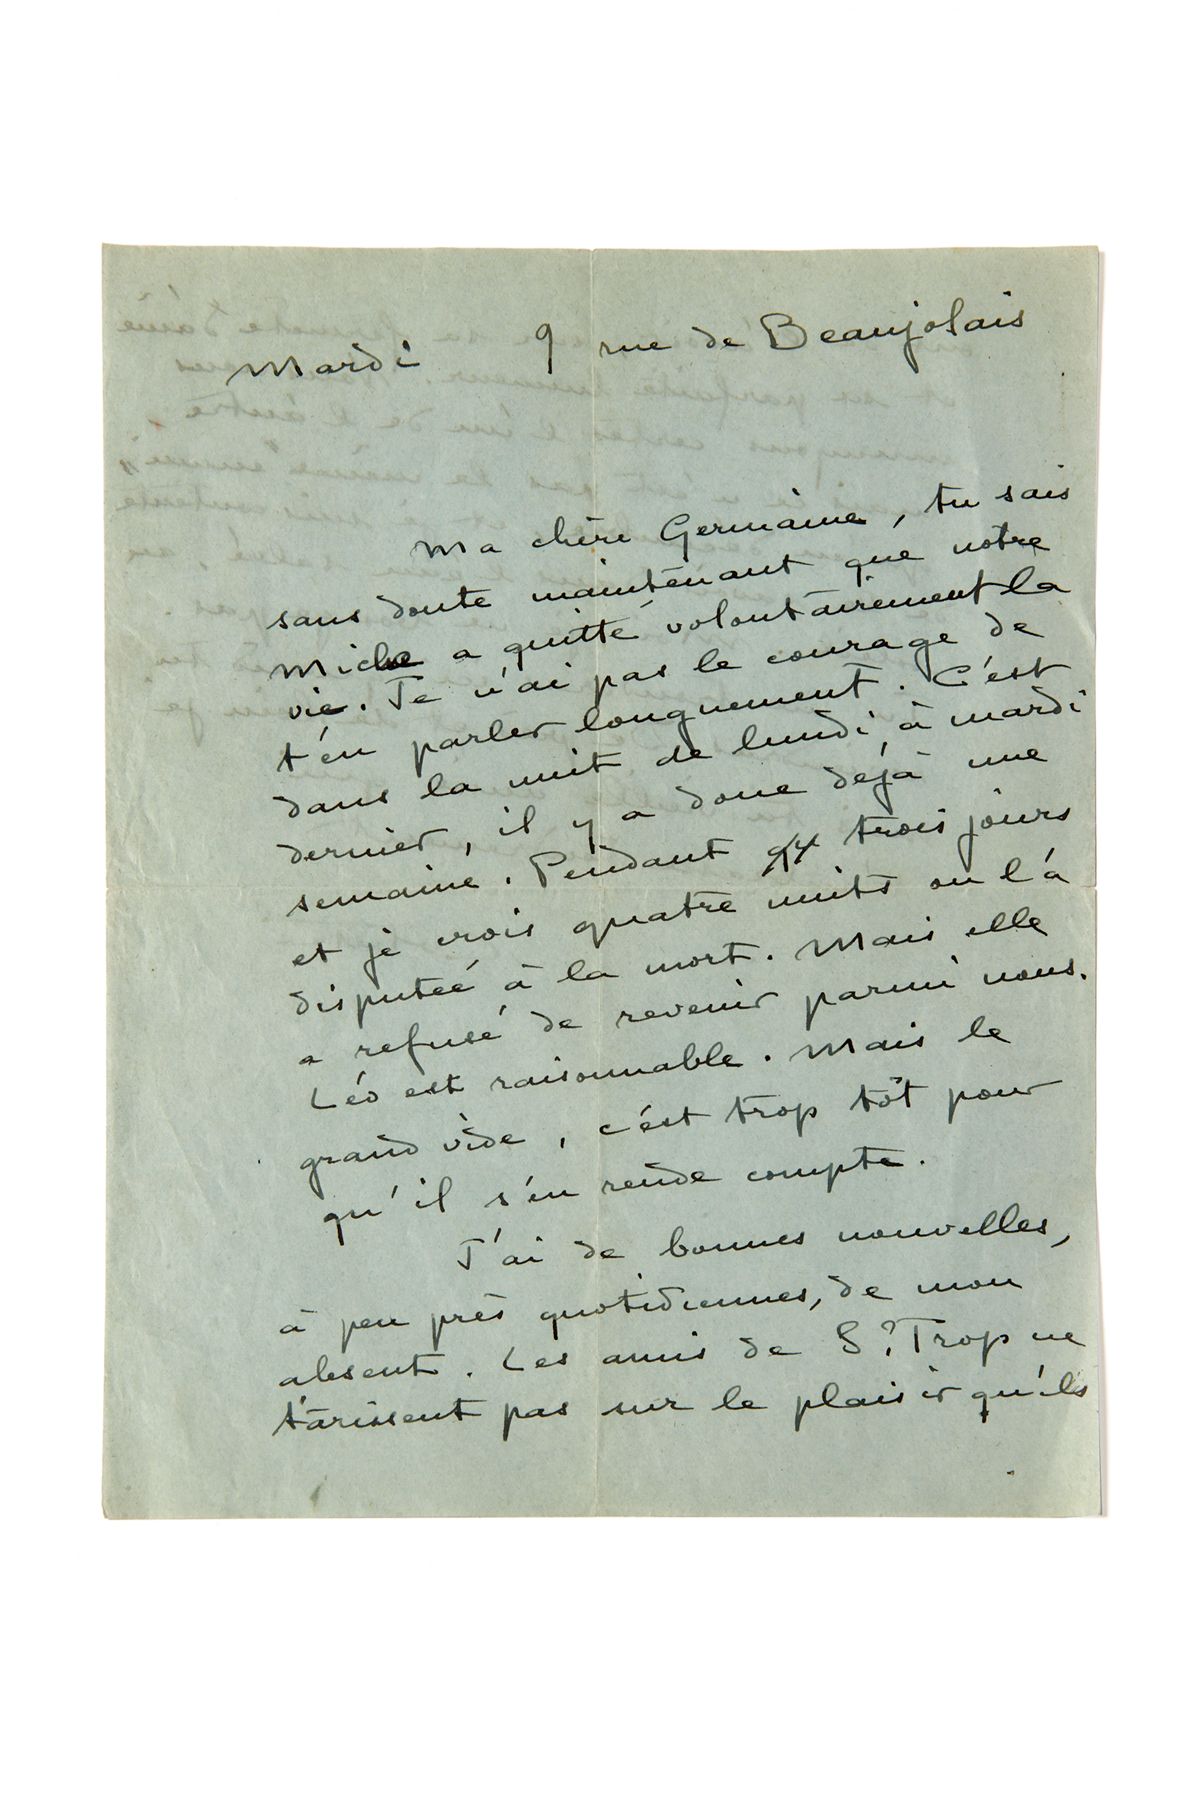 Mardi 9 rue de Beaujolais
Ma chère Germaine, tu sais
sans doute maintenant que notre
Miche a quitté volontairement la
vie. Je n'ai pas le courage de
t'en parler longuement. C'est
dans la nuit de lundi à mardi
dernier, il y a donc déjà une
semaine. Pendant trois jours
et je crois quatre nuits on l'a
disputée à la mort. Mais elle
a refusé de revenir parmi nous.
Léo est raisonnable. Mais le
grand vide, c'est trop tôt pour
qu'il s'en rende compte.
J'ai de bonnes nouvelles,
à peu près quotidiennes, de mon
absent. Les amis de St Trop ne
tarissent pas sur le plaisir qu'ils